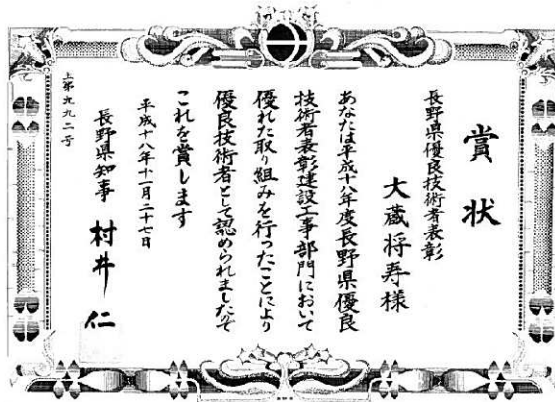 賞状
長野県優良技術者表彰
大蔵将寿様
あなたは平成十八年度長野県優良
技術者表彰建設工事部門において
優れた取り組みを行ったことにより
優良技術者として認められましたので
これを賞します
平成十八年十一月二十七日
長野県知事 村井 仁
上第九九二号